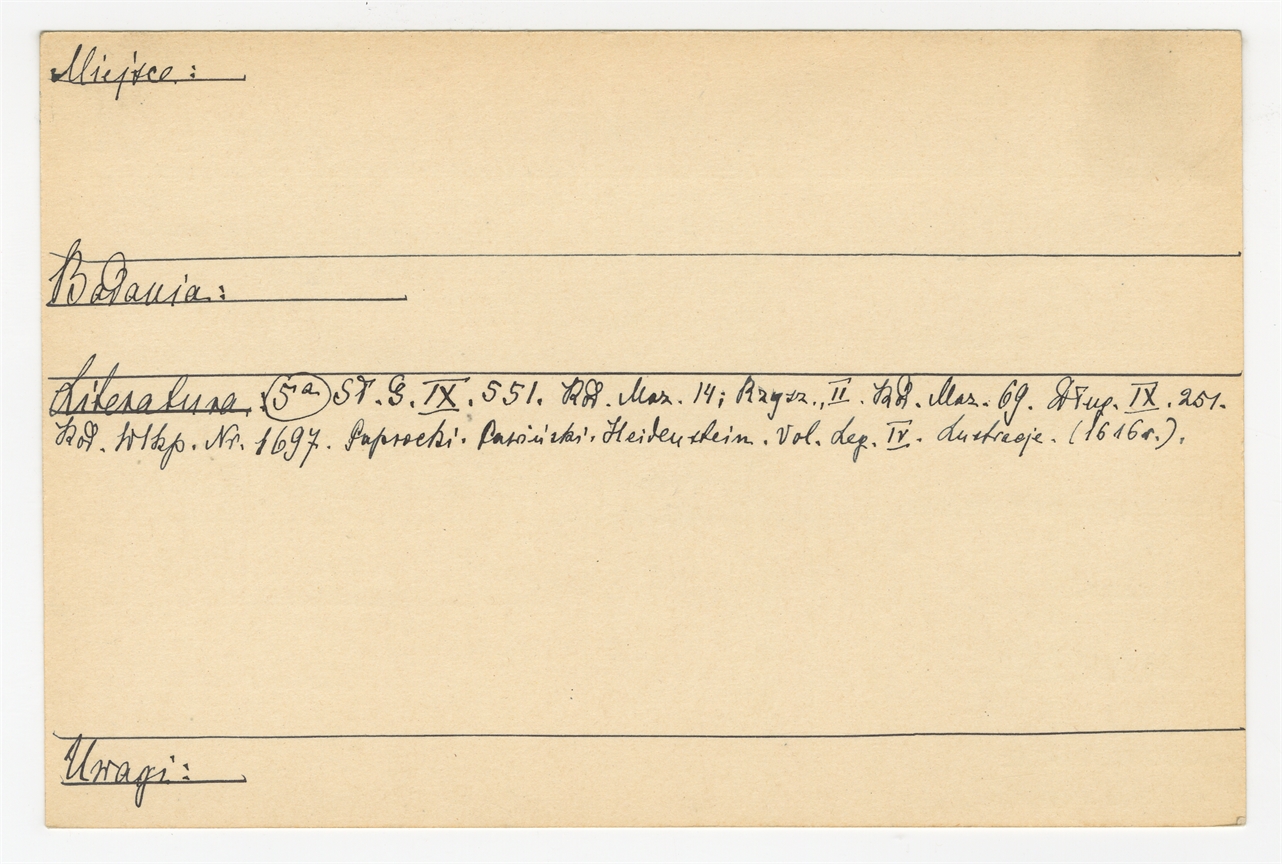 Miejsce:
Badania:
Literatura. 5a Sł. G. IX. 551. Kod. Maz. 14; Rzysz., II. Kod. Maz. 69. Dług. IX. 251.
Kod. Wlkp. Nr. 1697. Paprocki. Pawiński. Heidenstein. Vol. Leg. IV. Lustracje. (1616r.).
Uwagi: